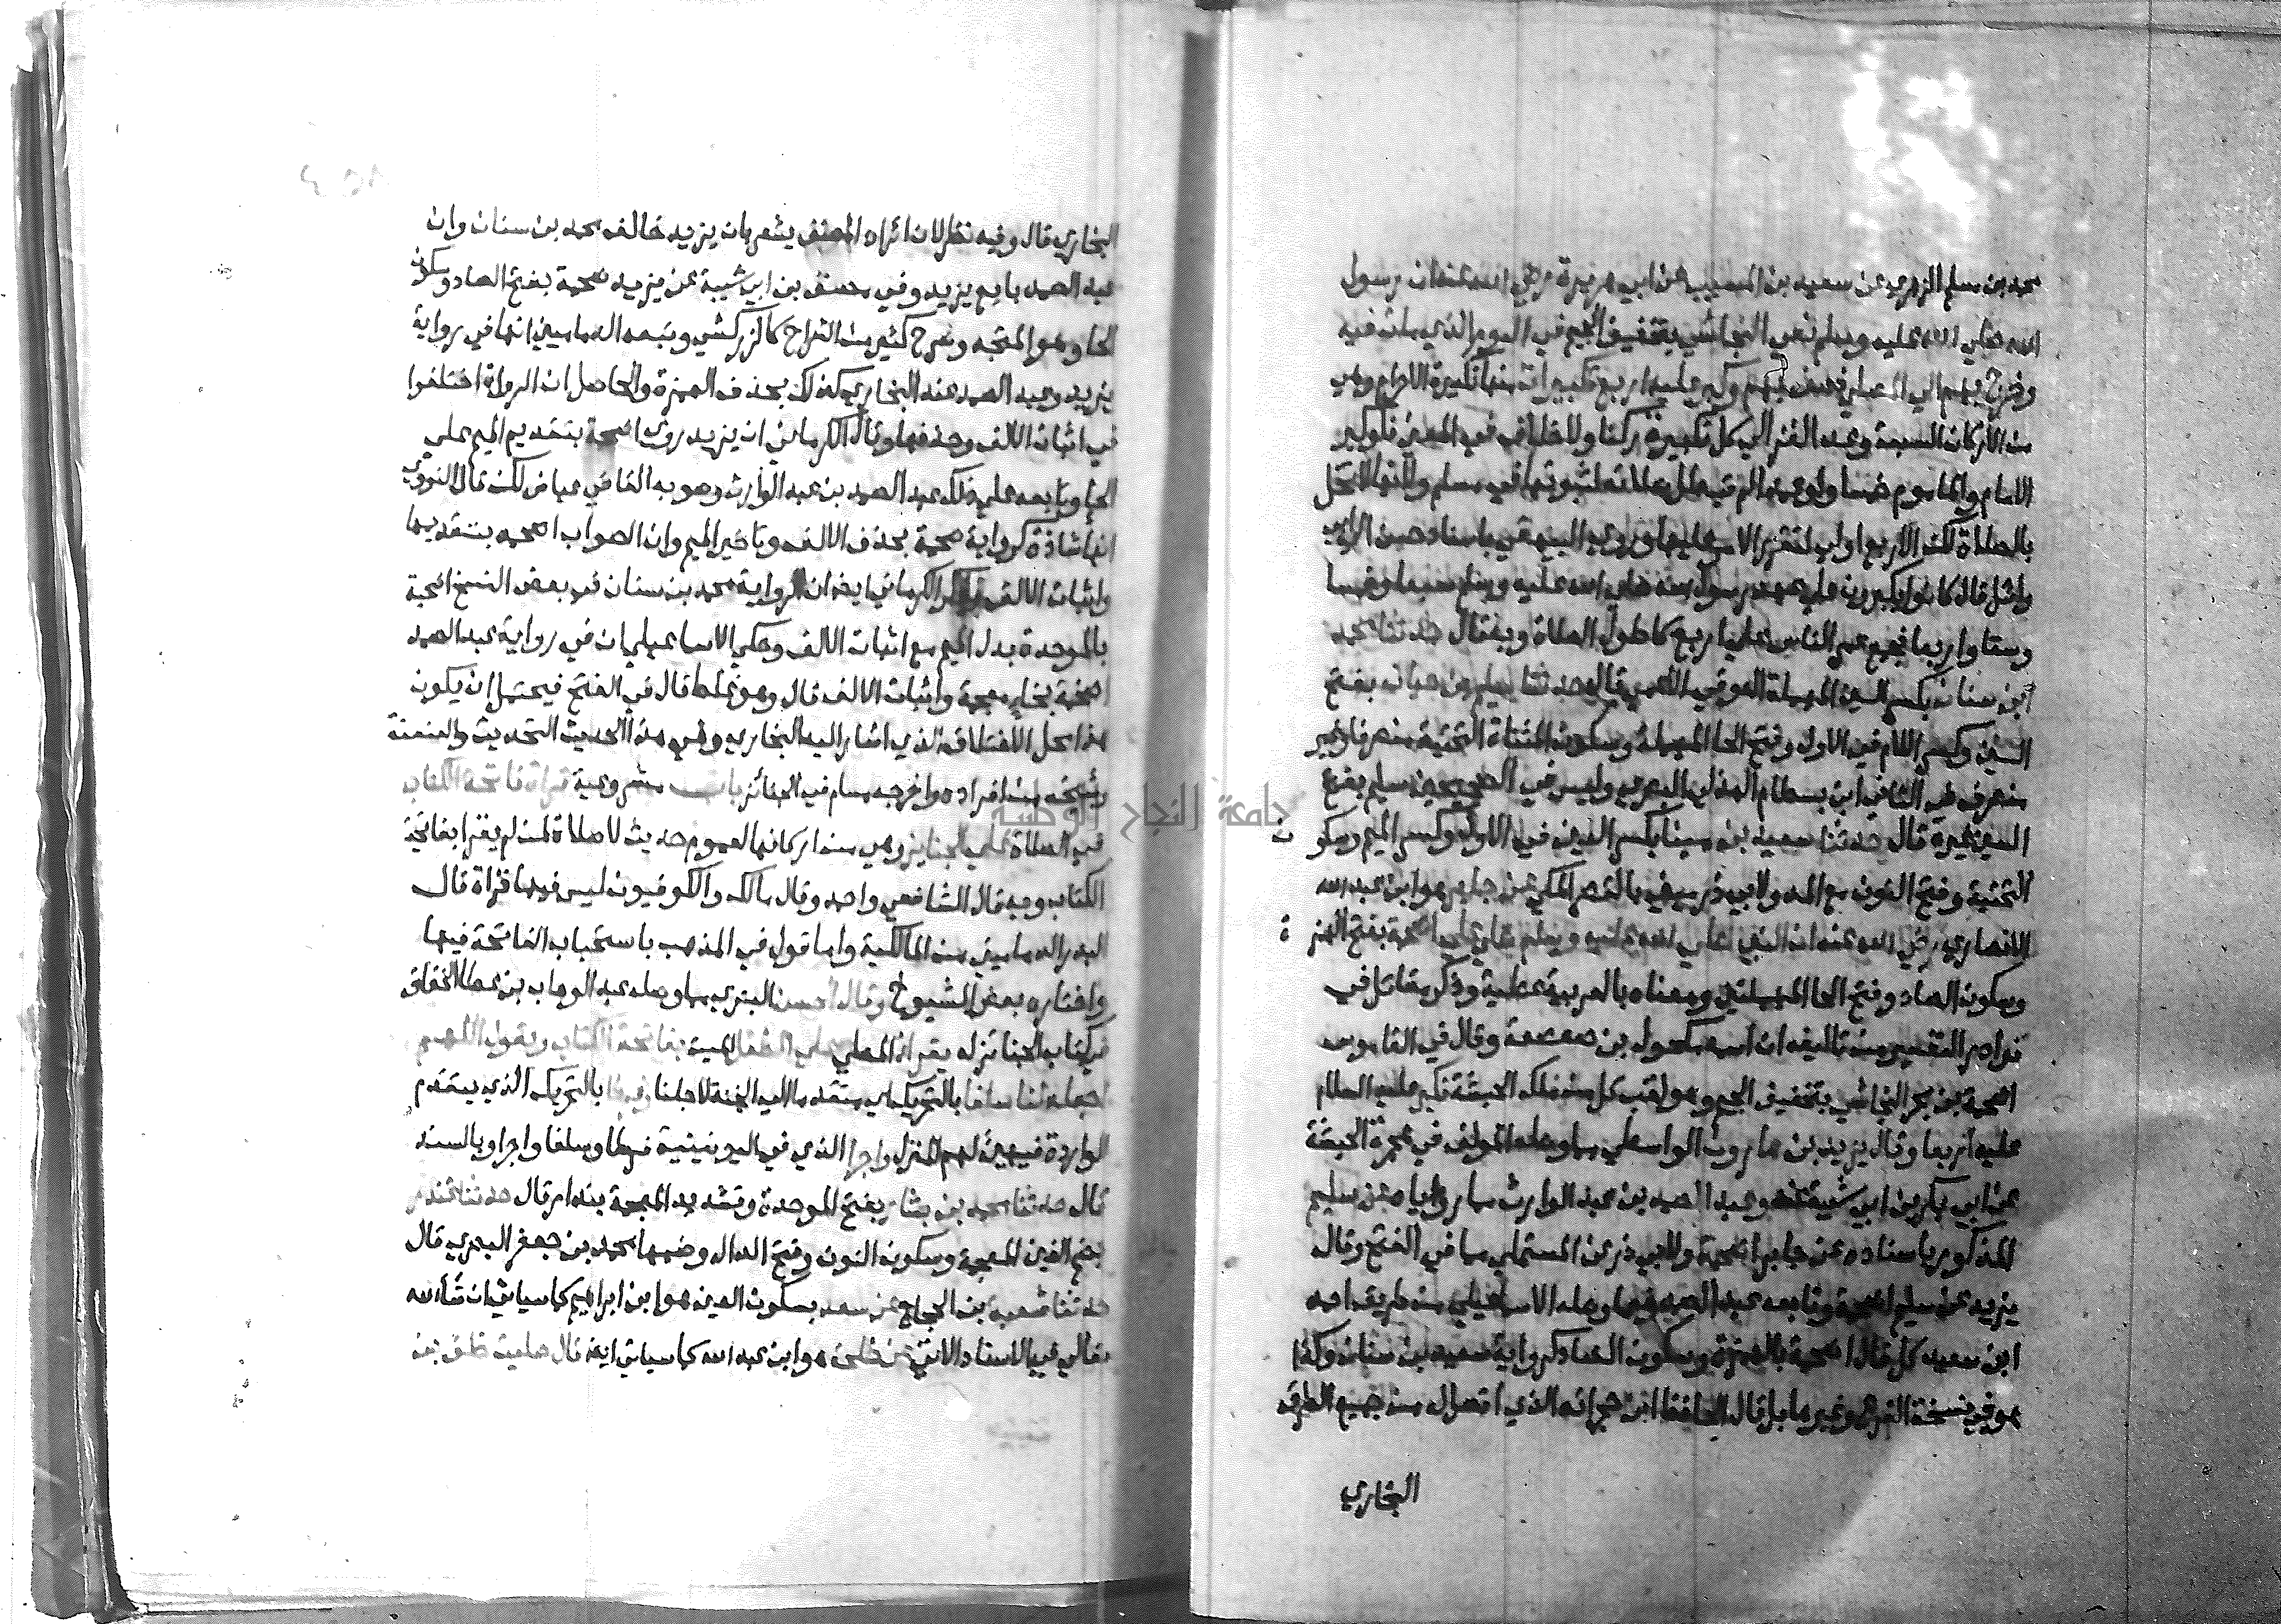 محمد بن مسلم الزهري عن سعيد بن المسيب عن ابي هريرة رضي الله عنه ان رسول
الله صلي الله عليه وسلم نعي النجاشي بتخفيف الجيم في اليوم الذي مات فيه
وخرج بهم الي المصلي فصف بهم وكبر عليه اربع تكبيرات منها تكبيرة الاحرام وهي
من الاركان السبعة وعد الغزالي كل تكبيرة ركنا ولا خلاف في المعني فلو كبر
الامام والماموم خمسا ولو عمدا لم تبطل صلاته لثبوتها في مسلم ولانها لا تخل
بالصلاة لكن الاربع اولي لتقرر الامر عليها وروي البيهقي باسناد حسن الي ابي
وايل قال كانوا يكبرون علي عهد رسول الله صلي الله عليه وسلم سبعا وخمسا
وستا واربعا فجمع عمر الناس علي اربع كاطول الصلاة وبه قال حدثنا محمد
ابن سنان بكسر السين المهملة العوقي الاعمي قال حدثنا سليم بن حيان بفتح
السين وكسر اللام في الاول وفتح الحا المهملة وسكون المثناة التحتية منصرفا وغير
منصرف في الثاني ابن بسطام الهذلي البصري وليس في الصحيحين سليم بفتح
السين غيره قال حدثنا سعيد بن مينا بكسر العين في الاول وكسر الميم وسكون
التحتية وفتح النون مع المد ولابي ذر مينى بالقصر المكي عن جابر هو ابن عبد الله
الانصاري رضي الله عنه ان النبي صلي الله عليه وسلم صلي علي اصحمة بفتح الهمزة
وسكون الصاد وفتح الحا المهملتين ومعناه بالعربية عطية وذكر مقاتل في
نوادر التفسير من تاليفه ان اسمه مكحول بن صعصعة وقال في القاموس
اصحمة بن بحر النجاشي بتخفيف الجيم وهو لقب كل من ملك الحبشة فكبر عليه السلام
عليه اربعا وقال يزيد بن هارون الواسطي مما وصله المولف في هجرة الحبشة
عن ابي بكر بن ابي شيبة عنه وعبد الصمد بن عبد الوارث مما روياه عن سليم
المذكور باسناده عن جابر اصحمة ولابي ذر عن المستملي مما في الفتح وقال
يزيد عن سليم اصحمة وتابعه عبد الصمد فيما وصله الاسماعيلي من طريق احمد
ابن سعيد كل قال اصحمة بالهمزة وسكون الصاد كرواية محمد بن سنان وكذا
هو في نسخة الفرع وغيرها بل قال الحافظ ابن حجر انه الذي اتصل له من جميع الطرق
البخاري
البخاري قال وفيه نظر لان ايراد المصنف يشعر بان يزيد خالف محمد بن سنان وان
عبد الصمد تابع يزيد وفي مصنف بن ابي شيبة عن يزيد صحمة بفتح الصاد وسكون
الحا وهو المتجه وصرح كثير من الشراح كالزركشي وتبعه الدماميني انها في رواية
يزيد وعبد الصمد عند البخاري كذلك بحذف الهمزة والحاصل ان الرواة اختلفوا
في اثبات الالف وحذفها وقال الكرماني ان يزيد روي اصمحة بتقديم الميم علي
الحا وتابعه علي ذلك عبد الصمد بن عبد الوارث وصوبه القاضي عياض لكن قال النووي
انها شاذة كرواية صحمة بحذف الالف وتاخير الميم وان الصواب اصحمه بتقديمها
واثبات الالف الكرماني ايضا ان الرواية محمد بن سنان في بعض النسخ اصحبة
بالموحدة بدل الميم مع اثبات الالف وحكي الاسماعيلي ان في رواية عبد الصمد
اصخمة بخاء معجمة واثبات الالف قال وهو غلط قال في الفتح فيحتمل ان يكون
هذا محل الاختلاف الذي اشار اليه البخاري وفي هذا الحديث التحديث والعنعنة
وشيخه من افراده واخرجه مسلم في الجنائز باب مشروعية قراة فاتحة الكتاب
في الصلاة علي الجنايز وهي من اركانها لعموم حديث لا صلاة لمن لم يقرا بفاتحة
الكتاب وبه قال الشافعي واحمد وقال مالك والكوفيون ليس فيها قراة قال
البدر الدماميني من المالكية ولنا قول في المذهب باستحباب الفاتحة فيها
واختاره بعض الشيوخ وقال الحسن البصري مما وصله عبد الوهاب بن عطا الخفاف
في كتاب الجنائز له يقرا المصلي علي الطفل الميت بفاتحة الكتاب ويقول اللهم
اجعله لنا سلفا بالتحريك اي متقدما الي الجنة لاجلنا وفرطا بالتحريك الذي يتقدم
الواردة فيهيئ لهم المنزل واجرا الذي في اليونينية فرطا وسلفا واجرا وبالسند
قال حدثنا محمد بن بشار بفتح الموحدة وتشديد المعجمة بندار قال حدثنا غندر
بضم الغين المعجمة وسكون النون وفتح الدال وضمها محمد بن جعفر البصري قال
حدثنا شعبة بن الحجاج عن سعد بسكون العين هو ابن ابراهيم كما سياتي ان شا الله
تعالي في الاسناد الاتي عن طلحة هو ابن عبد الله كما سياتي ايضا قال صليت خلف بن
جامعة النجاح الوطنية